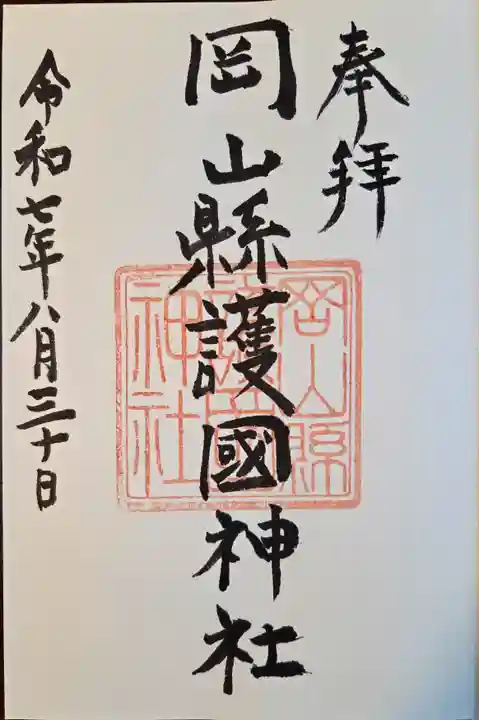 奉拝
岡山縣護國神社
岡山縣
護國
神社
令和七年八月三十日